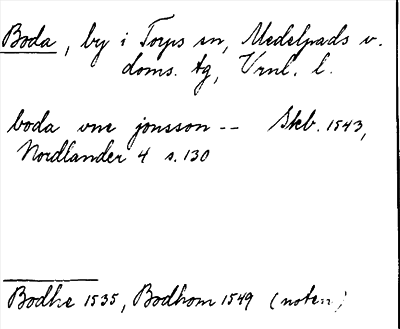 Boda, by i Torps sn, Medelpads v.
doms. tg, Vrnl. l.
boda one jonsson -- Skb. 1543,
Nordlander 4 s. 130
Bodhe 1535, Bodhom 1549 (noten)